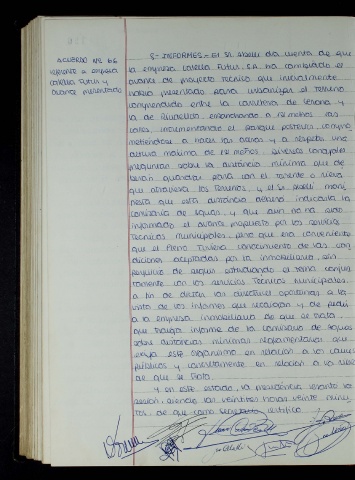 ACUERDO Nº 66
REFERENTE a empresa
Catella Futur y
avance presentado
5.- INFORMES.- El Sr. Abelli da cuenta de que
la empresa Catella Futur S.A. ha completado el
avance de proyecto técnico que inicialmente
había presentado para urbanizar el terreno
comprendido entre la carretera de Gerona y
la de
metiendose a hacer las obras y a respetar una
altura máxima de metros. Diversos Concejales
preguntan sobre la distancia mínima que de-
berán guardar para con el torrente o riera
que atraviesa los terrenos, y el Sr. Abelli mani-
fiesta que esta distancia deberá indicarla la
Comisaría de Aguas, y que aun no ha sido
informado el avance propuesto por los servicios
Técnicos municipales, pero que era conveniente
que el Pleno tuviera conocimiento de las con-
diciones aceptadas por la inmobiliaria, sin
perjuicio de seguir estudiando el tema conjun-
tamente con los servicios Técnicos municipales,
a fin de dictar las directrices oportunas a la
vista de los informes que recaigan y de pedir
a la empresa inmobiliaria de que se trata
que traiga informe de la Comisaría de Aguas
sobre distancias mínimas reglamentarias que
exija este organismo en relación a los cauces
públicos y concretamente en relación a la riera
de que se trata.
Y en este estado, la presidencia levantó la
sesión, siendo las veintitres horas veinte minu-
tos, de que como Secretario certifico.